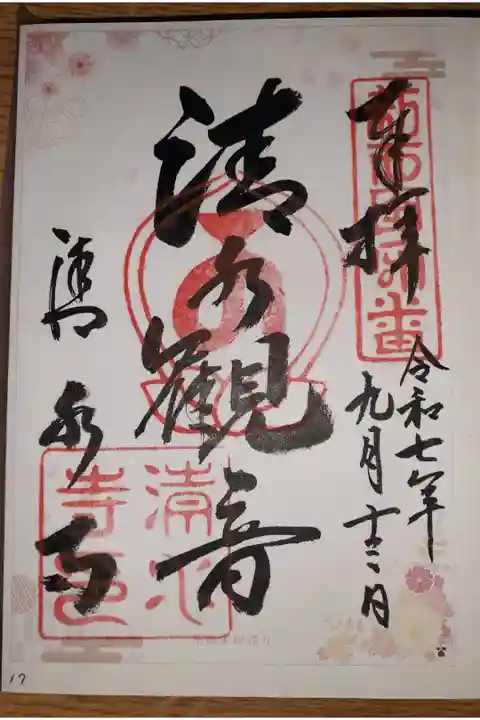 奉拝
令和七年
九月十二日
清水観音
清水寺
清水寺印
17